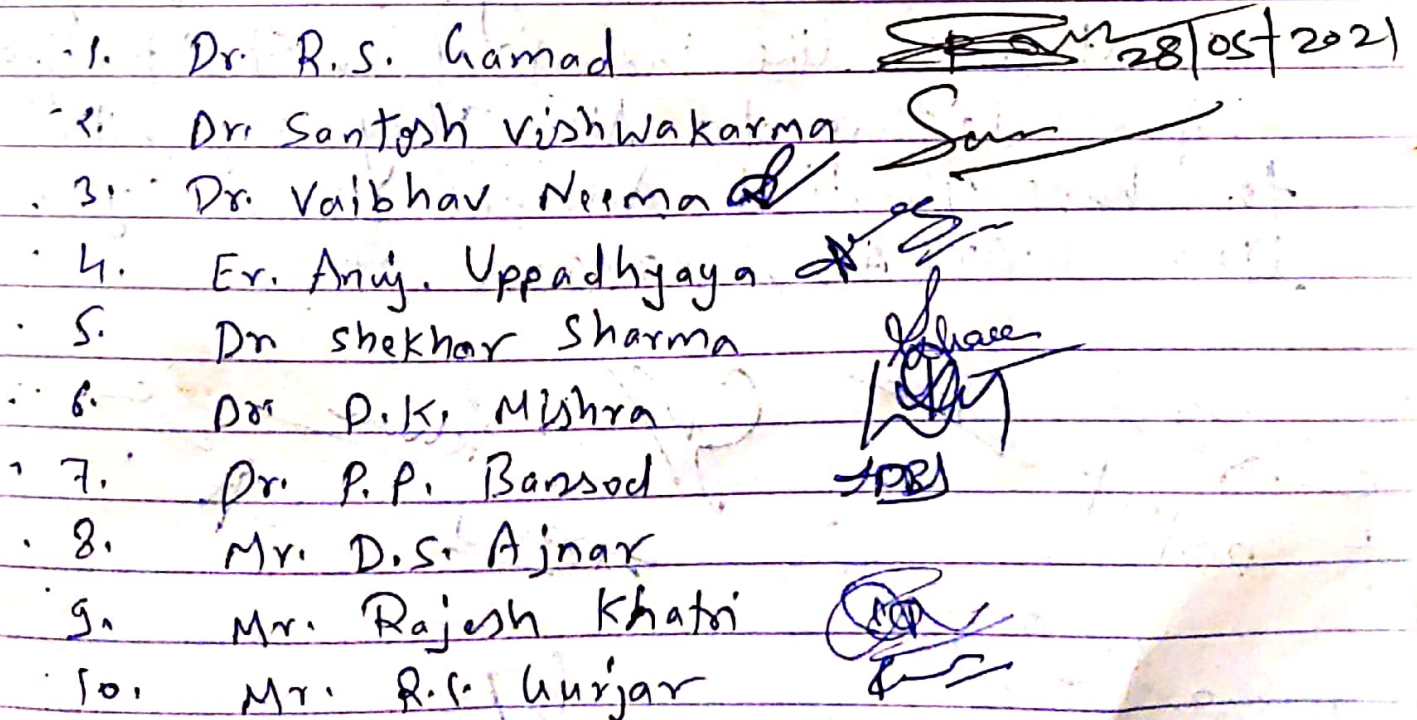 1. Dr. R.S. Gamad 28/05/2021
2. Dr. Santosh Vishwakarma
3. Dr. Vaibhav Neema
4. Er. Anuj. Uppadhyaya
5. Dr. Shekhar Sharma
6. Dr. D.K. Mishra
7. Dr. P.P. Bansod
8. Mr. D.S. Ajnar
9. Mr. Rajesh Khatri
10. Mr. R.S. Gurjar